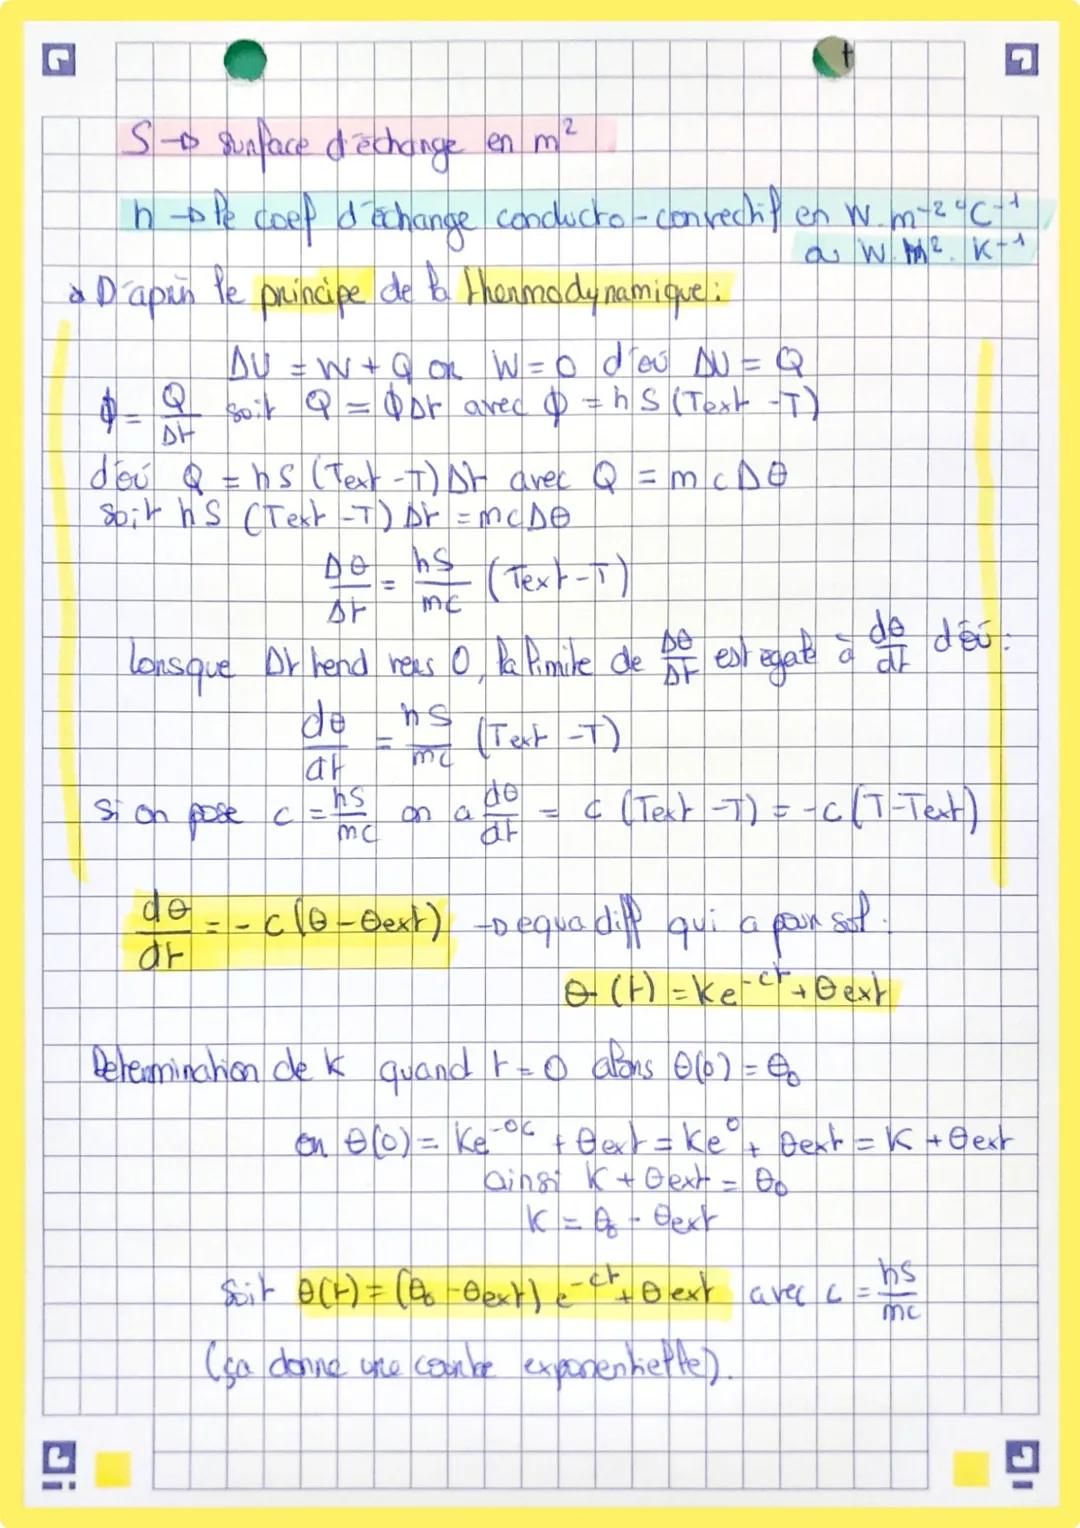 S → surface d'échange en m²
h → le coef d'échange conducto-convectif en W.m⁻² °C⁻¹
ou W.M². K⁻¹
D'après le principe de la thermodynamique :
ΔU = W + Q or W = 0 d'où ΔU = Q
ϕ = Q/Δt soit Q = ϕΔt avec ϕ = h S (Text - T)
d'où Q = hS (Text - T) Δt avec Q = mcΔθ
soit hS (Text - T) Δt = mcΔθ
Δθ/Δt = hS/mc (Text - T)
lorsque Δt tend vers 0, la limite de Δθ/Δt est egale à dθ/dt d'où :
dθ/dt = hS/mc (Text - T)
si on pose c = hS/mc on a dθ/dt = c (Text - T) = -c (T - Text)
dθ/dt = - c (θ - θext) → equa diff qui a pour sol :
θ (t) = Ke⁻ᶜᵗ + θext
Determination de K quand t = 0 alors θ(0) = θ₀
or θ(0) = Ke⁻⁰ᶜ + θext = Ke⁰ + θext = K + θext
ainsi K + θext = θ₀
K = θ₀ - θext
soit θ(t) = (θ₀ - θext) e⁻ᶜᵗ + θext avec c = hS/mc
(ça donne une courbe exponentielle).